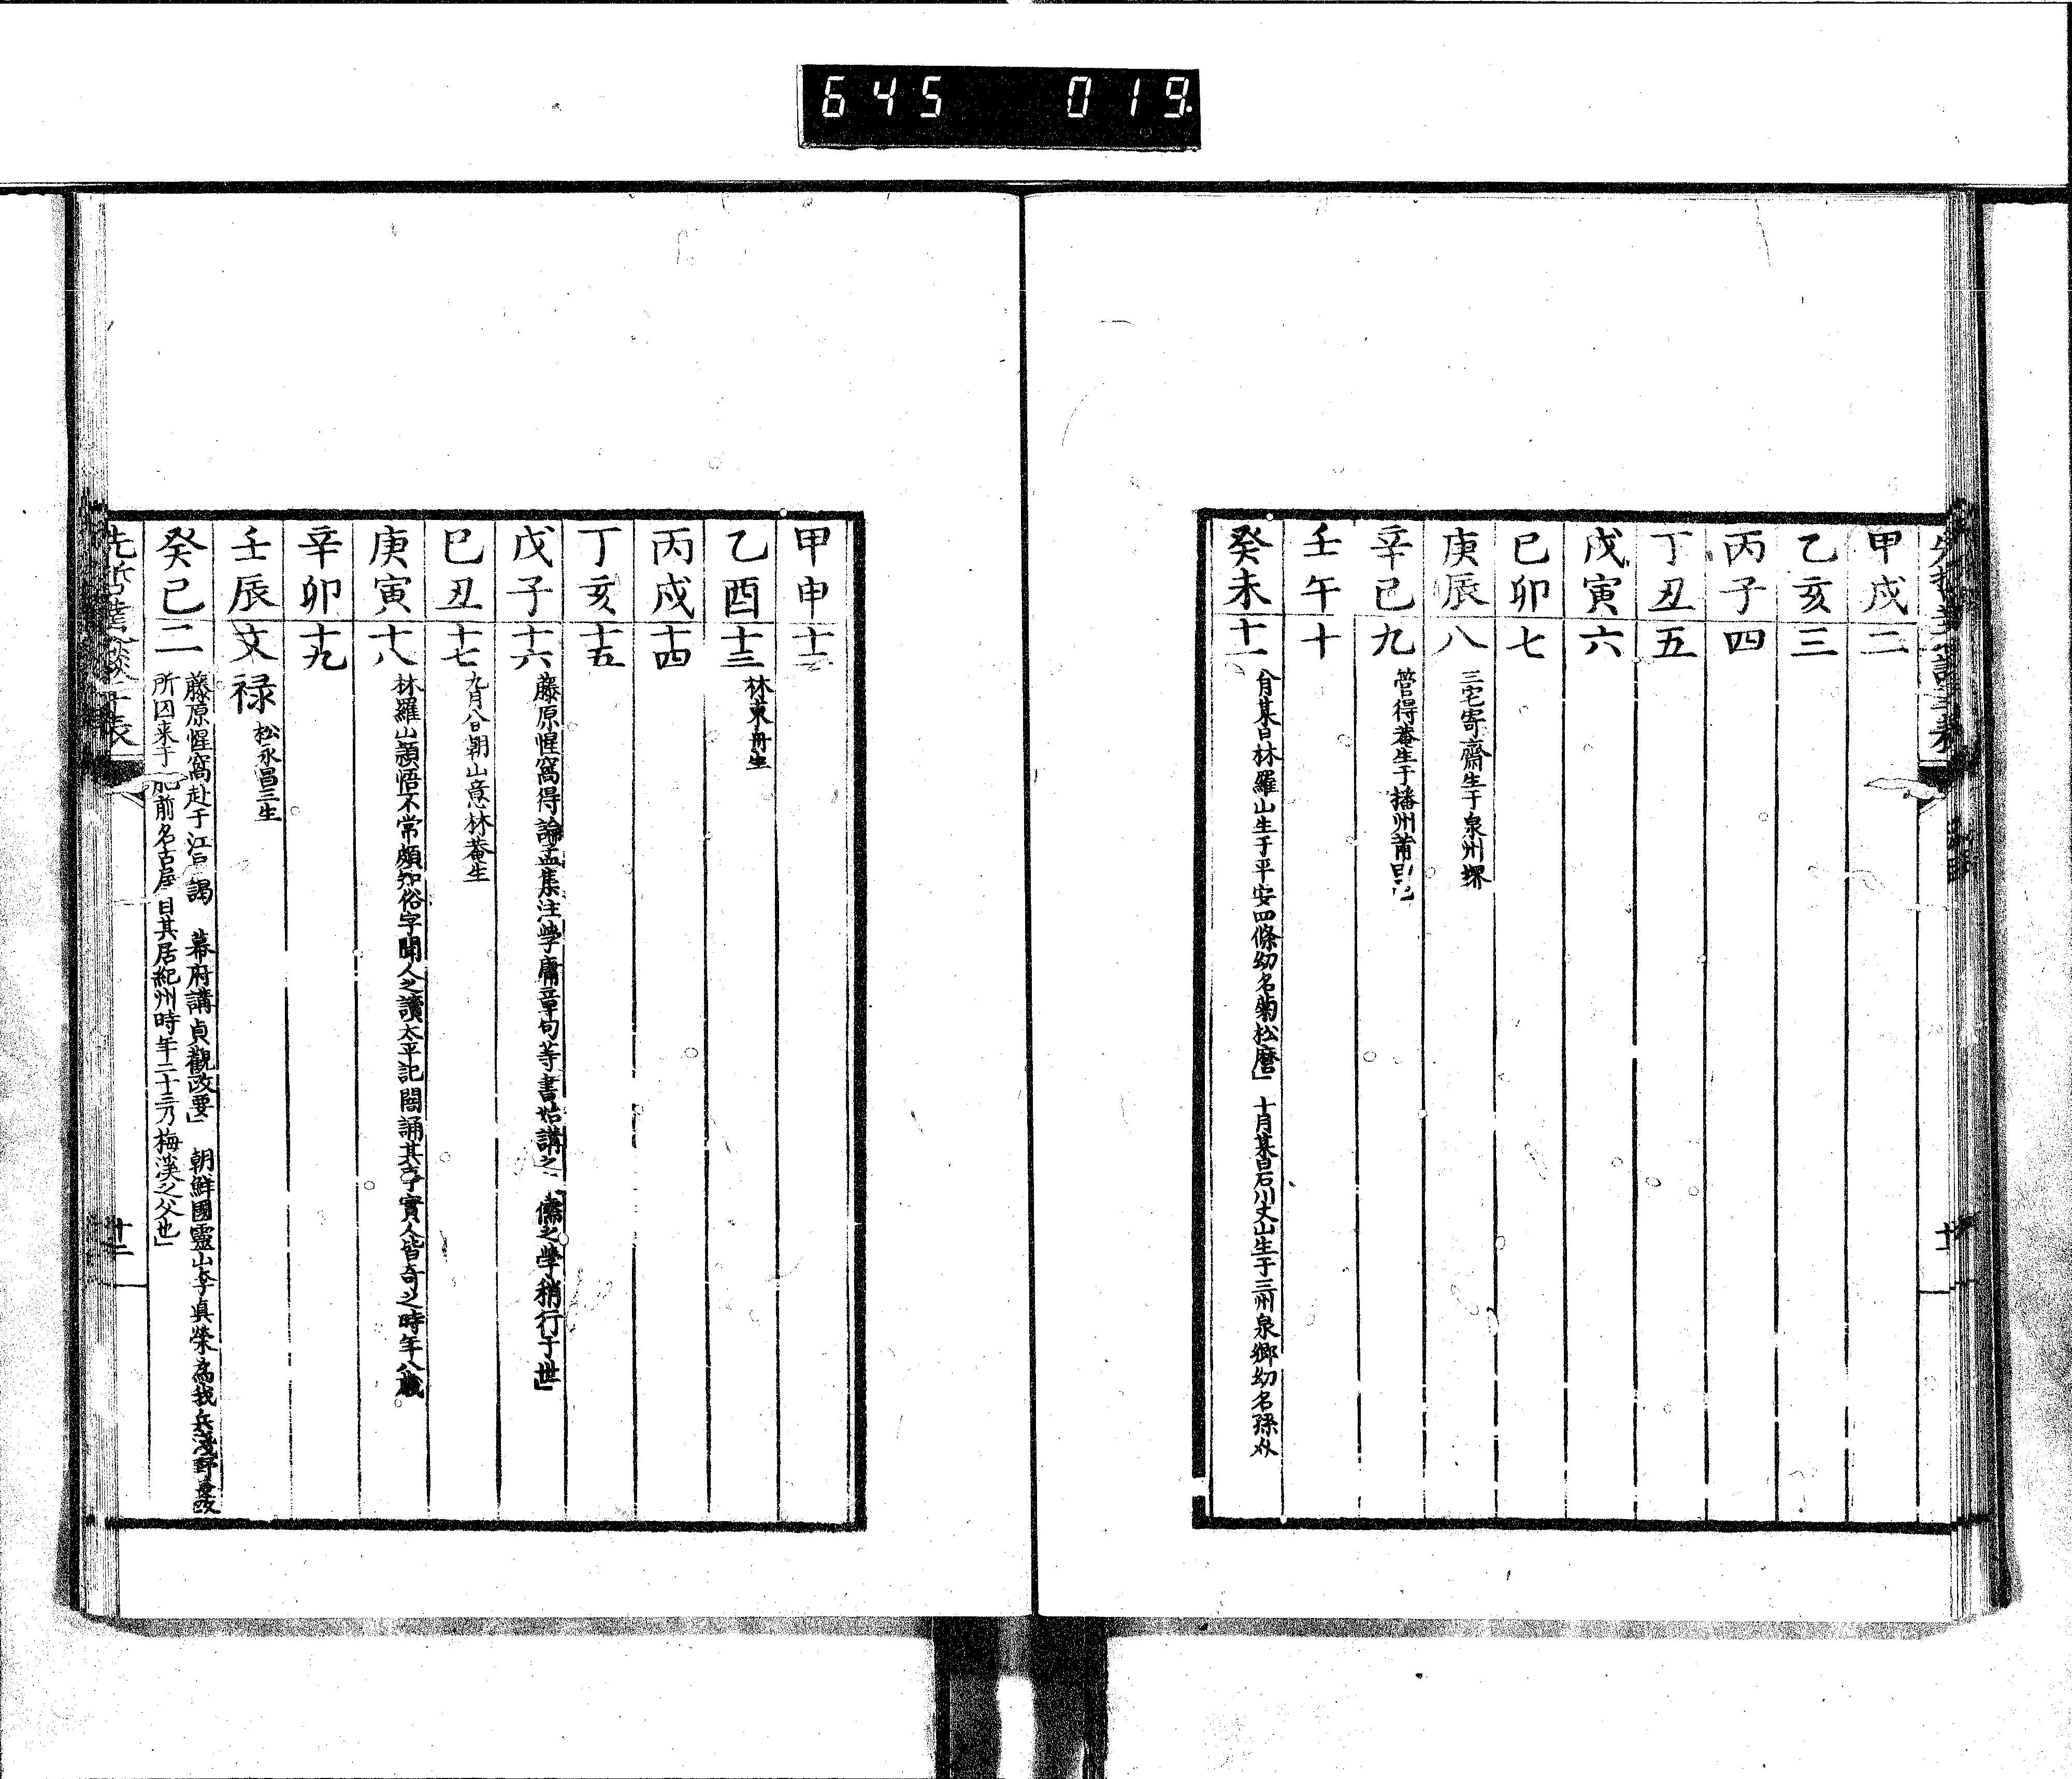 645 019
甲戌二
乙亥三
丙子四
丁丑五
戊寅六
己卯七
庚辰八 三宅寄齋生于泉州堺
辛巳九 菅得菴生于播州
壬午十
癸未十一 八月某日林羅山生于平安四條幼名菊松麿」 十月某日石川丈山生于三州泉鄉幼名孫
甲申十二
乙酉十三 林東舟生
丙戌十四
丁亥十五
戊子十六 藤原惺窩得論孟集注學庸章句等書始講之 儒之學稍行于世」
己丑十七 九月八日朝山意林菴生
庚寅十八 林羅山穎悟不常頗知俗字聞人之讀太平記闇誦其事實人皆奇之時年八歲
辛卯十九
壬辰文祿 松永昌三生
癸巳二 藤原惺窩赴于江戶謁 幕府講貞觀政要」 朝鮮國靈山李眞榮為我兵淺野
所囚来于肥前名古屋 其居紀州時年二十三乃梅溪之父也」
先哲叢談年表 十二